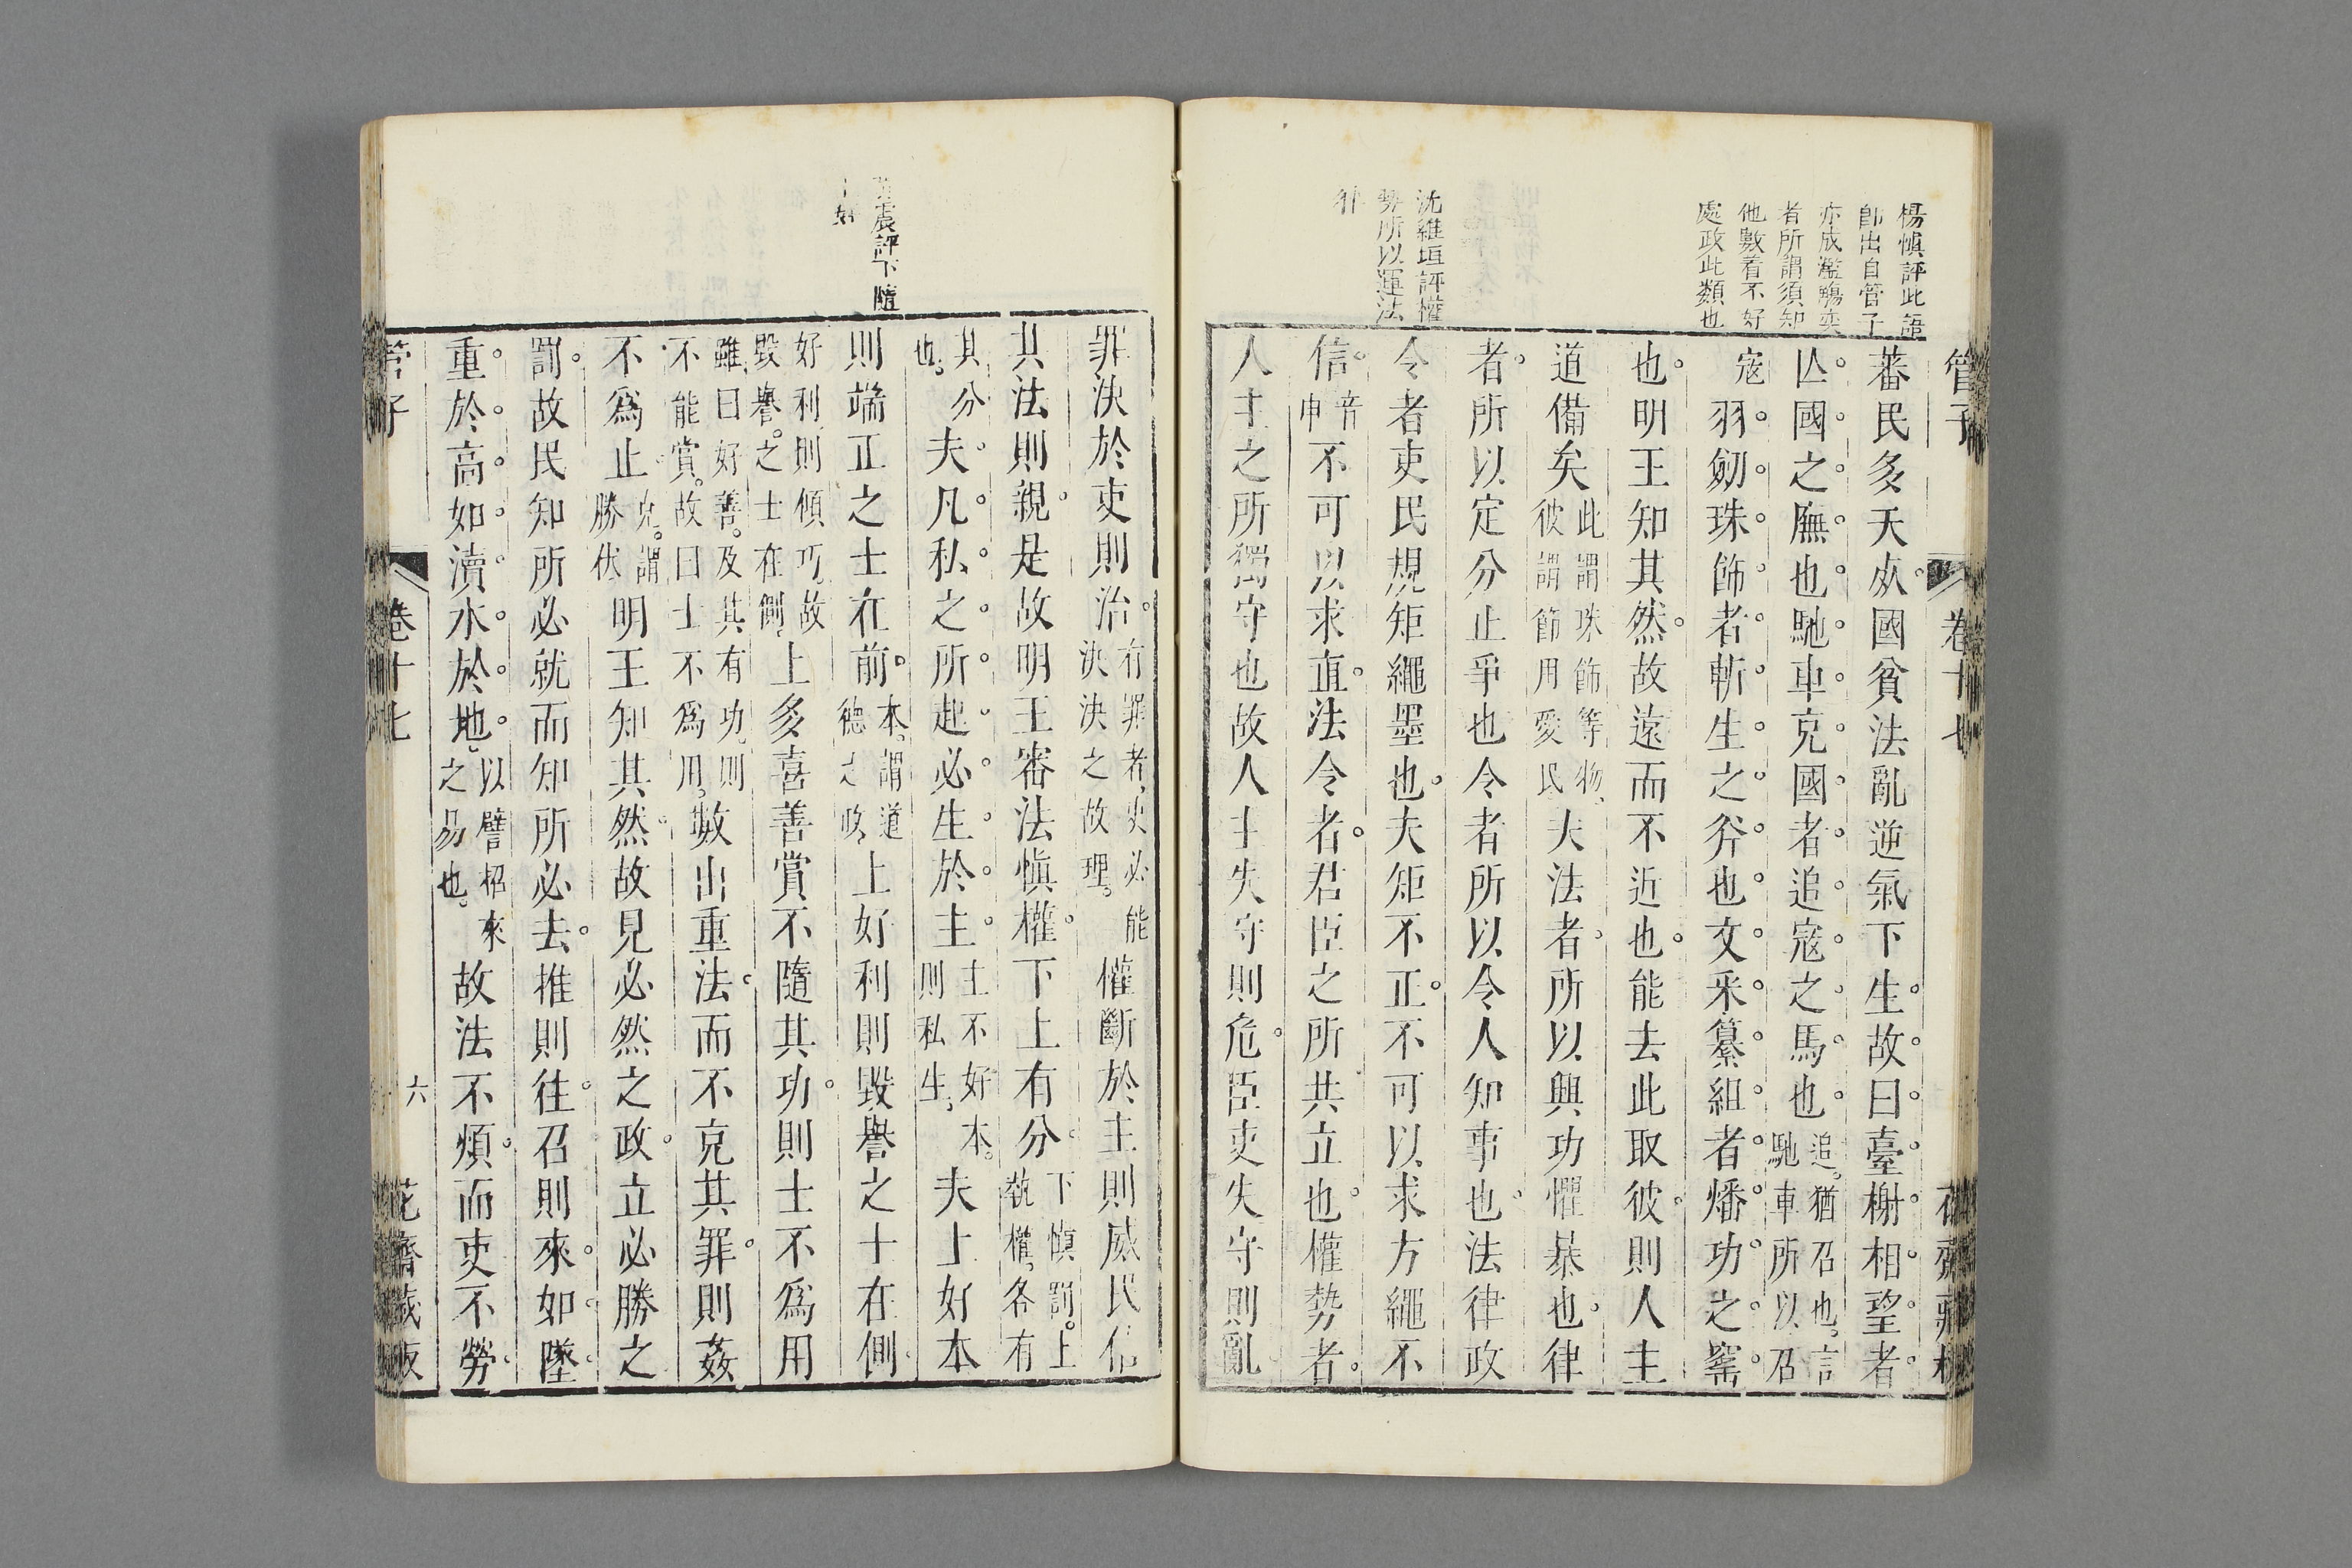 楊愼評此語
卽出自管子
亦成濫觴奕
者所謂須知
他數着不好
處政此類也
沈維垣評權
勢所以運法
管子
卷十七
蕃民多夭疾國貧法亂逆氣下生故曰臺榭相望者
亾國之廡也馳車充國者追寇之馬也追猶召也言
馳車所以召
寇羽劒珠飾者斬生之斧也文釆纂組者燔功之窰
也明王知其然故遠而不近也能去此取彼則人主
道備矣此謂珠飾等物
彼謂節用愛民夫法者所以興功懼暴也律
者所以定分止爭也令者所以令人知事也法律政
令者吏民規矩繩墨也夫矩不正不可以求方繩不
信音
申不可以求直法令者君臣之所共立也權勢者
人主之所獨守也故人主失守則危臣吏失守則亂
震評下隨
罪決於吏則治有罪者吏必能
決決之故理權斷於主則威民信
其法則親是故明王審法愼權下上有分下愼罰上
執權各有
其分
也夫凡私之所起必生於主主不好本
則私生夫上好本
則端正之士在前本謂道
德之政上好利則毀譽之士在側
好利則傾巧故
毀譽之士在側上多喜善賞不隨其功則士不爲用
雖曰好善及其有功則
不能賞故曰士不爲用數出重法而不克其罪則姦
不爲止克謂
勝伏明王知其然故見必然之政立必勝之
罰故民知所必就而知所必去推則往召則來如墜
重於高如瀆水於地以譬招來
之易也故法不煩而吏不勞
管子
卷十七
六
花齋藏板